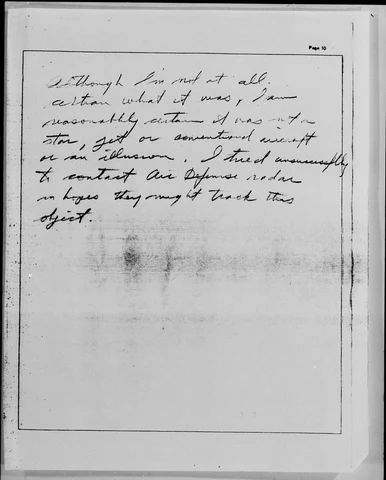 Page 10
Although I'm not at all
certain what it was, I am
reasonabhly certain it was not a
star, jet or conventional aircraft
or an illusion. I tried unsuccessfully
to contact Air Defense radar
in hopes they might track this
object.